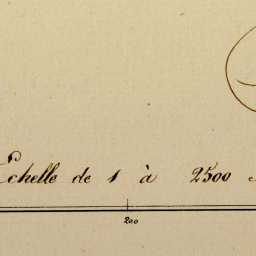 Echelle de 1 à 2500
200